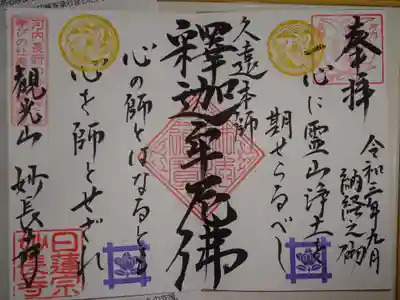 奉拝
令和二年九月
納経之砌
一心に霊山浄土を
期せらるべし
久遠本師
釋迦牟尼佛
心の師とはなるとも
心を師とせざれ
観光山 妙長寺
日蓮宗
妙長寺